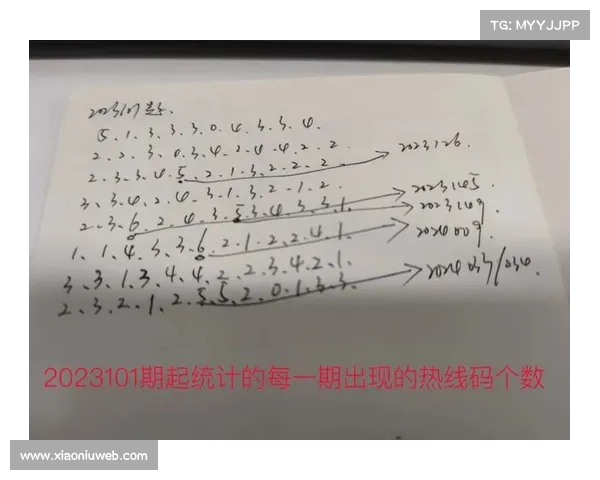 TG: MYYJJPP
2023101
5.1.3.3.3.0.4.3.3.4.
2.2.3.0.3.4.2.4.4.2.2
2.3.3.4.5.2.1.3.2.2.2 2023126
3.3.4.2.4.3.1.3.2.1.2
2.3.6.2.4.3.5.3.4.3.3.1. 2023145.
2023149.
1.1.4.3.3.6.2.1.2.2.4.1. 2024009.
3.3.1.3.4.4.2.2.3.4.2.1.
2.3.2.1.2.5.5.2.0.1.3.3. 2024033/034.
2023101期起统计的每一期出现的热线码个数
www.xiaoniuweb.com